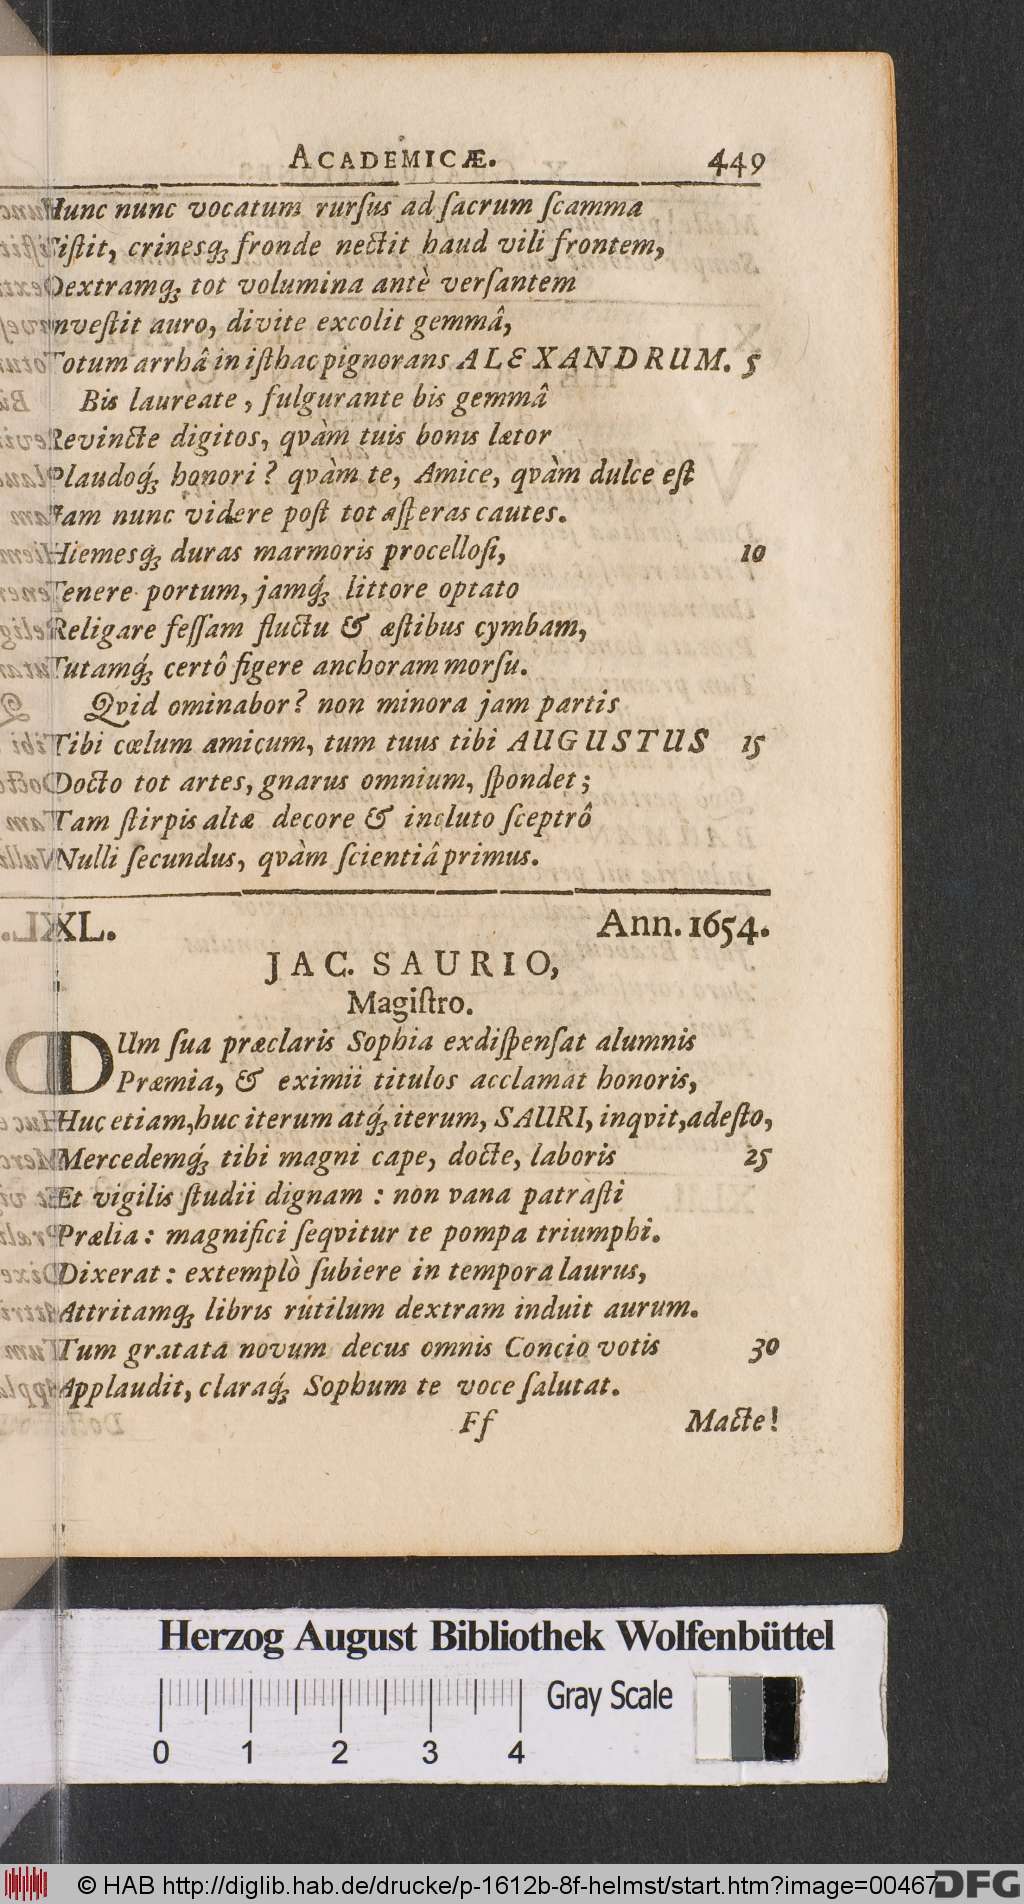 ACADEMICÆ. 449
Hunc nunc vocatum rurſus ad ſacrum ſcamma
Siſtit, crinesqꝫ fronde nectit haud vili frontem,
Dextramqꝫ tot volumina antè verſantem
Inveſtit auro, divite excolit gemmâ,
Totum arrhâ in iſthac pignorans ALEXANDRUM. 5
Bis laureate, fulgurante bis gemmâ
Revincte digitos, qvàm tuis bonis lætor
Plaudoq́ꝫ honori? qvàm te, Amice, qvàm dulce eſt
Jam nunc videre poſt tot aſperas cautes.
Hiemesqꝫ duras marmoris procelloſi, 10
Tenere portum, jamq́ꝫ littore optato
Religare feſſam fluctu & æſtibus cymbam,
Tutamq́ꝫ certô figere anchoram morſu.
Qvid ominabor? non minora jam partis
Tibi cœlum amicum, tum tuus tibi AUGUSTUS 15
Docto tot artes, gnarus omnium, ſpondet;
Tam ſtirpis altæ decore & incluto ſceptrô
Nulli ſecundus, qvàm ſcientiâ primus.
XL. Ann. 1654.
JAC. SAURIO,
Magiſtro.
DUm ſua præclaris Sophia exdiſpenſat alumnis
Præmia, & eximii titulos acclamat honoris,
Huc etiam, huc iterum atq́ꝫ iterum, SAURI, inqvit, adeſto,
Mercedemq́ꝫ tibi magni cape, docte, laboris 25
Et vigilis ſtudii dignam: non vana patràſti
Prælia: magnifici ſeqvitur te pompa triumphi.
Dixerat: extemplò ſubiere in tempora laurus,
Attritamqꝫ libris rutilum dextram induit aurum.
Tum gratata novum decus omnis Concio votis 30
Applaudit, claraq́ꝫ Sophum te voce ſalutat.
Ff Macte!
Herzog August Bibliothek Wolfenbüttel
Gray Scale
0 1 2 3 4
© HAB http://diglib.hab.de/drucke/p-1612b-8f-helmst/start.htm?image=00467
DFG